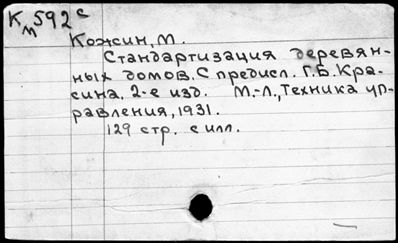 К 592 с
м
Кожсин, М.
Стандартизация деревян-
ных домов. С предисл. Г.Б. Кра-
сина. 2-е изд. М.-Л., Техника уп-
равления, 1931.
129 стр. с илл.